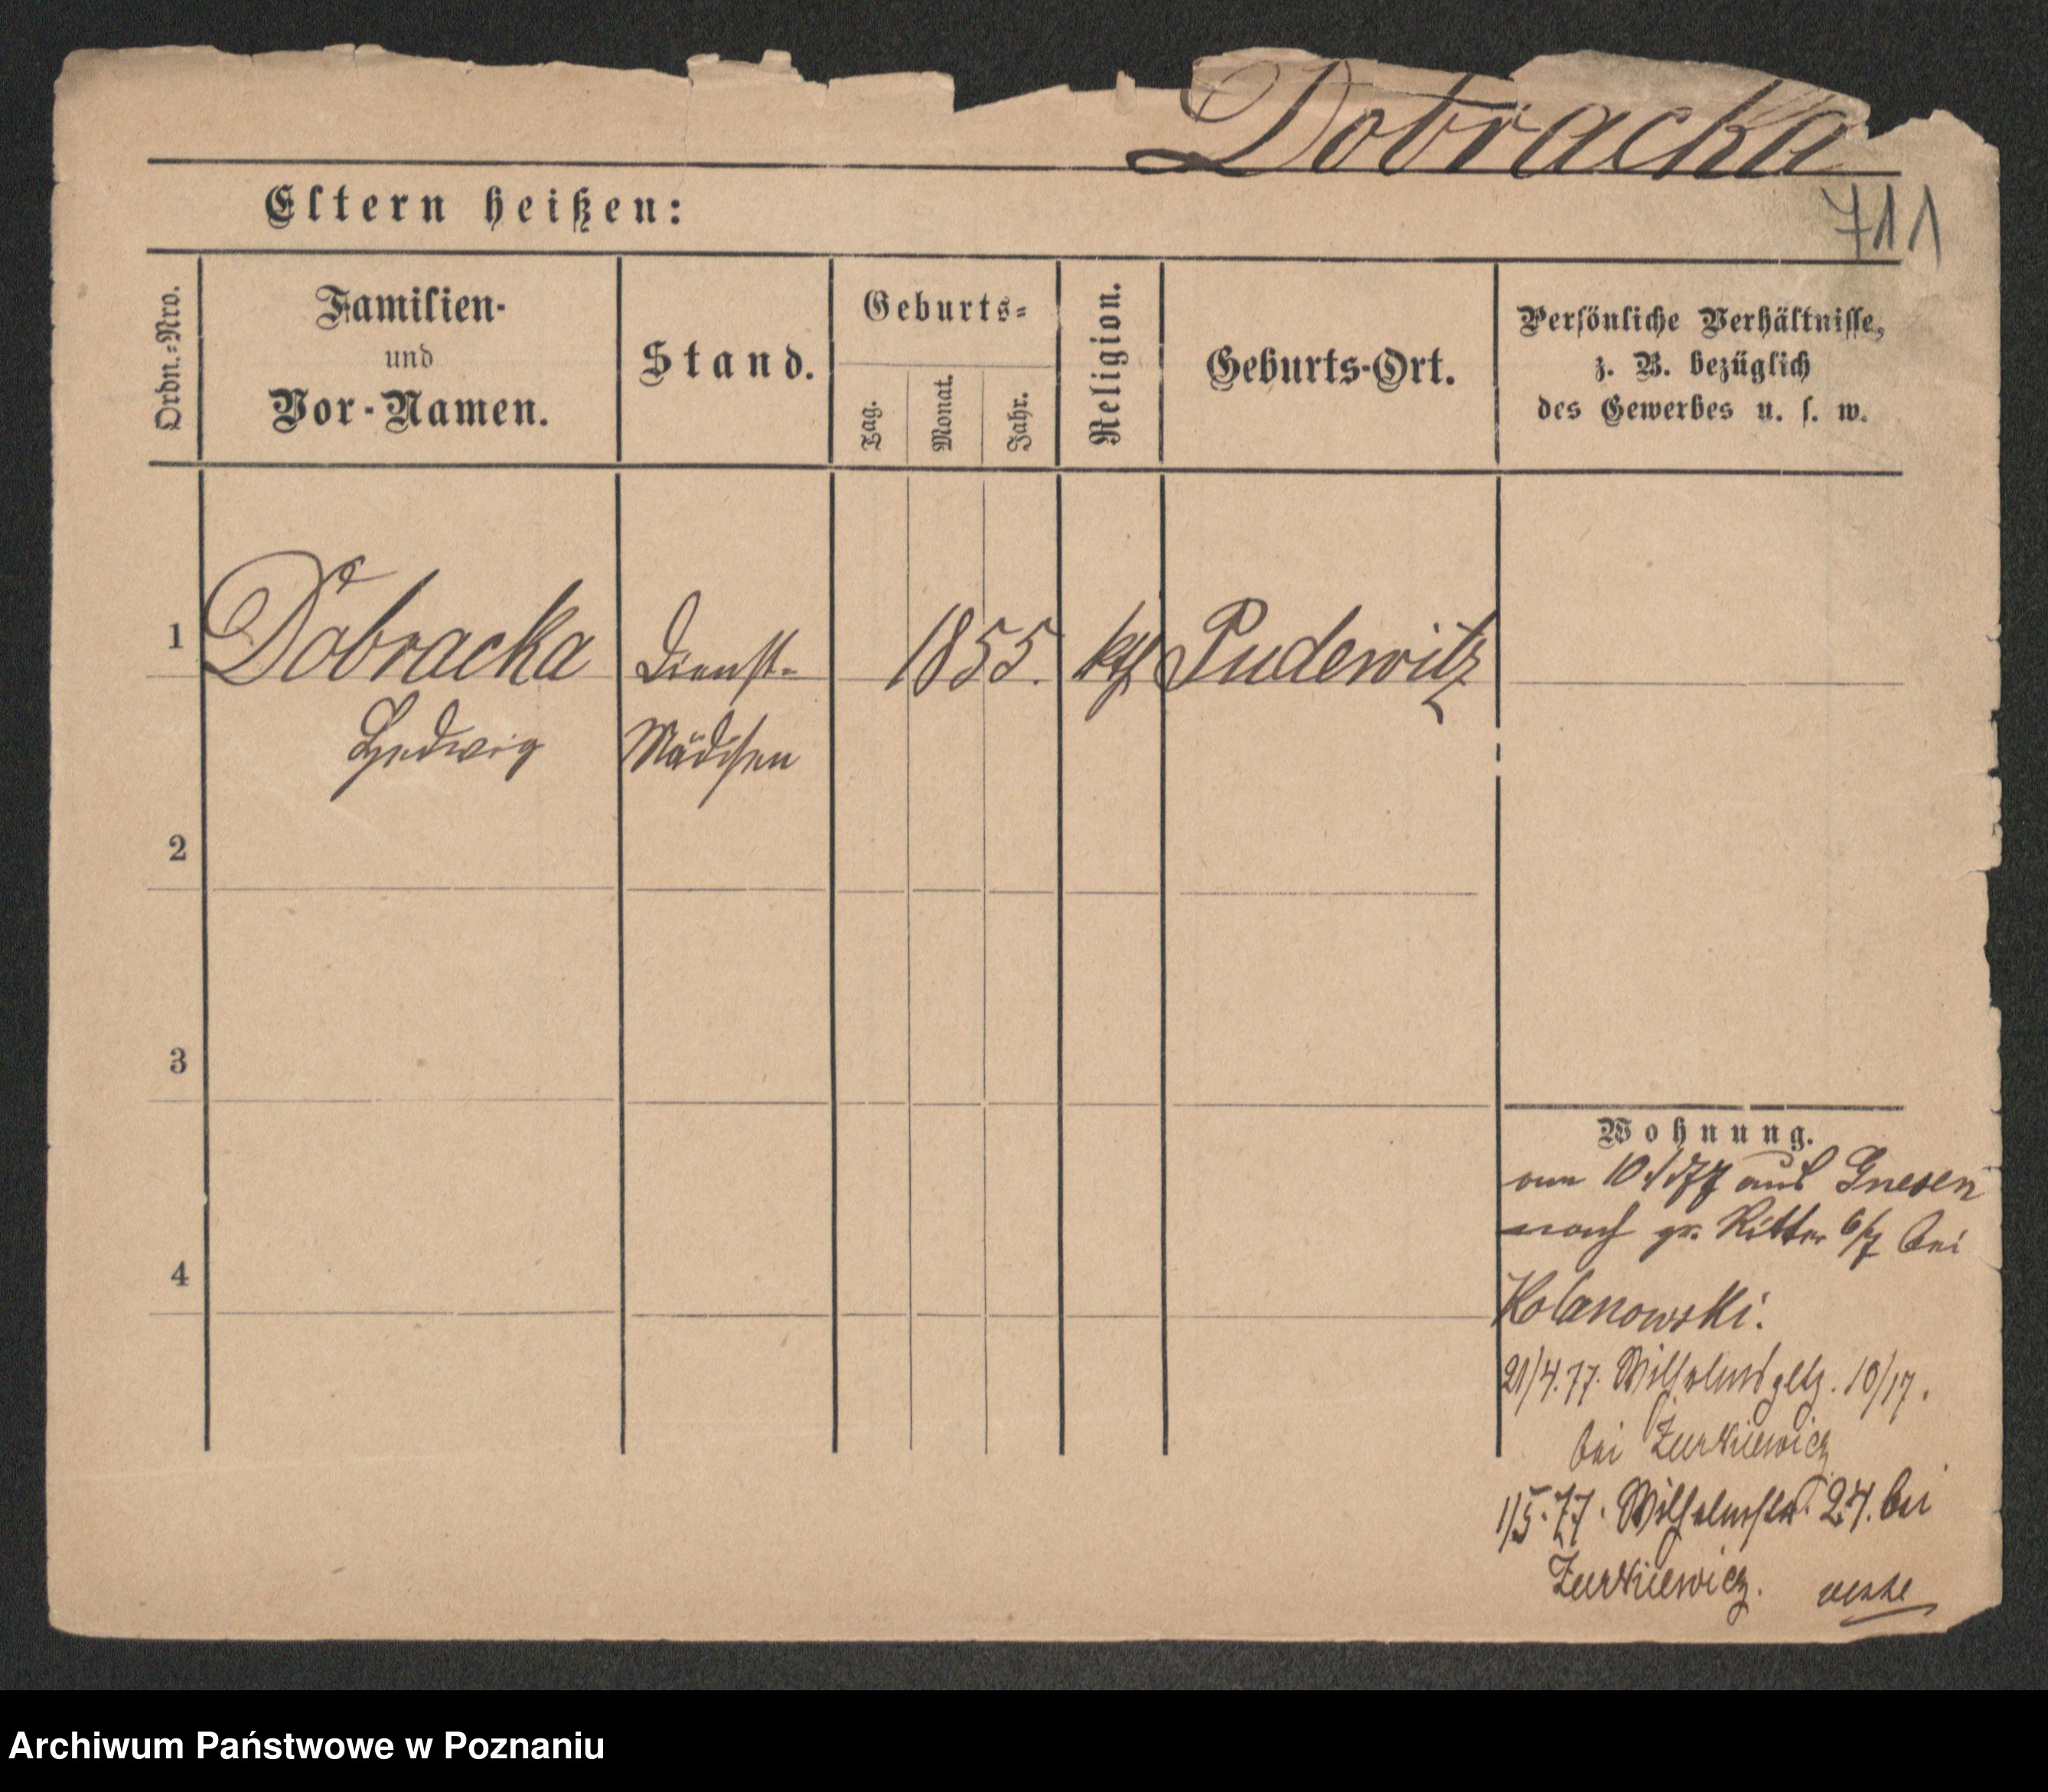 Dobracka
711
Eltern heißen:
Ordn.=Nro.
Familien-
und
Vor-Namen.
Stand.
Geburts=
Tag.
Monat.
Jahr.
Religion.
Geburts-Ort.
Persönliche Verhältnisse,
z. B. bezüglich
des Gewerbes u. s. w.
1
Dobracka
Hedwig
Dienst-
Mädchen
1855.
kth
Pudewitz
2
3
4
Wohnung.
am 10/1 77 aus Gnesen
nach gr. Ritter 6/7 bei
Kolanowski.
21/4.77. Wilhelmspltz. 10/17.
bei Zurkiewicz
1/5.77. Wilhelmstr. 27. bei
Zurkiewicz.
Archiwum Państwowe w Poznaniu